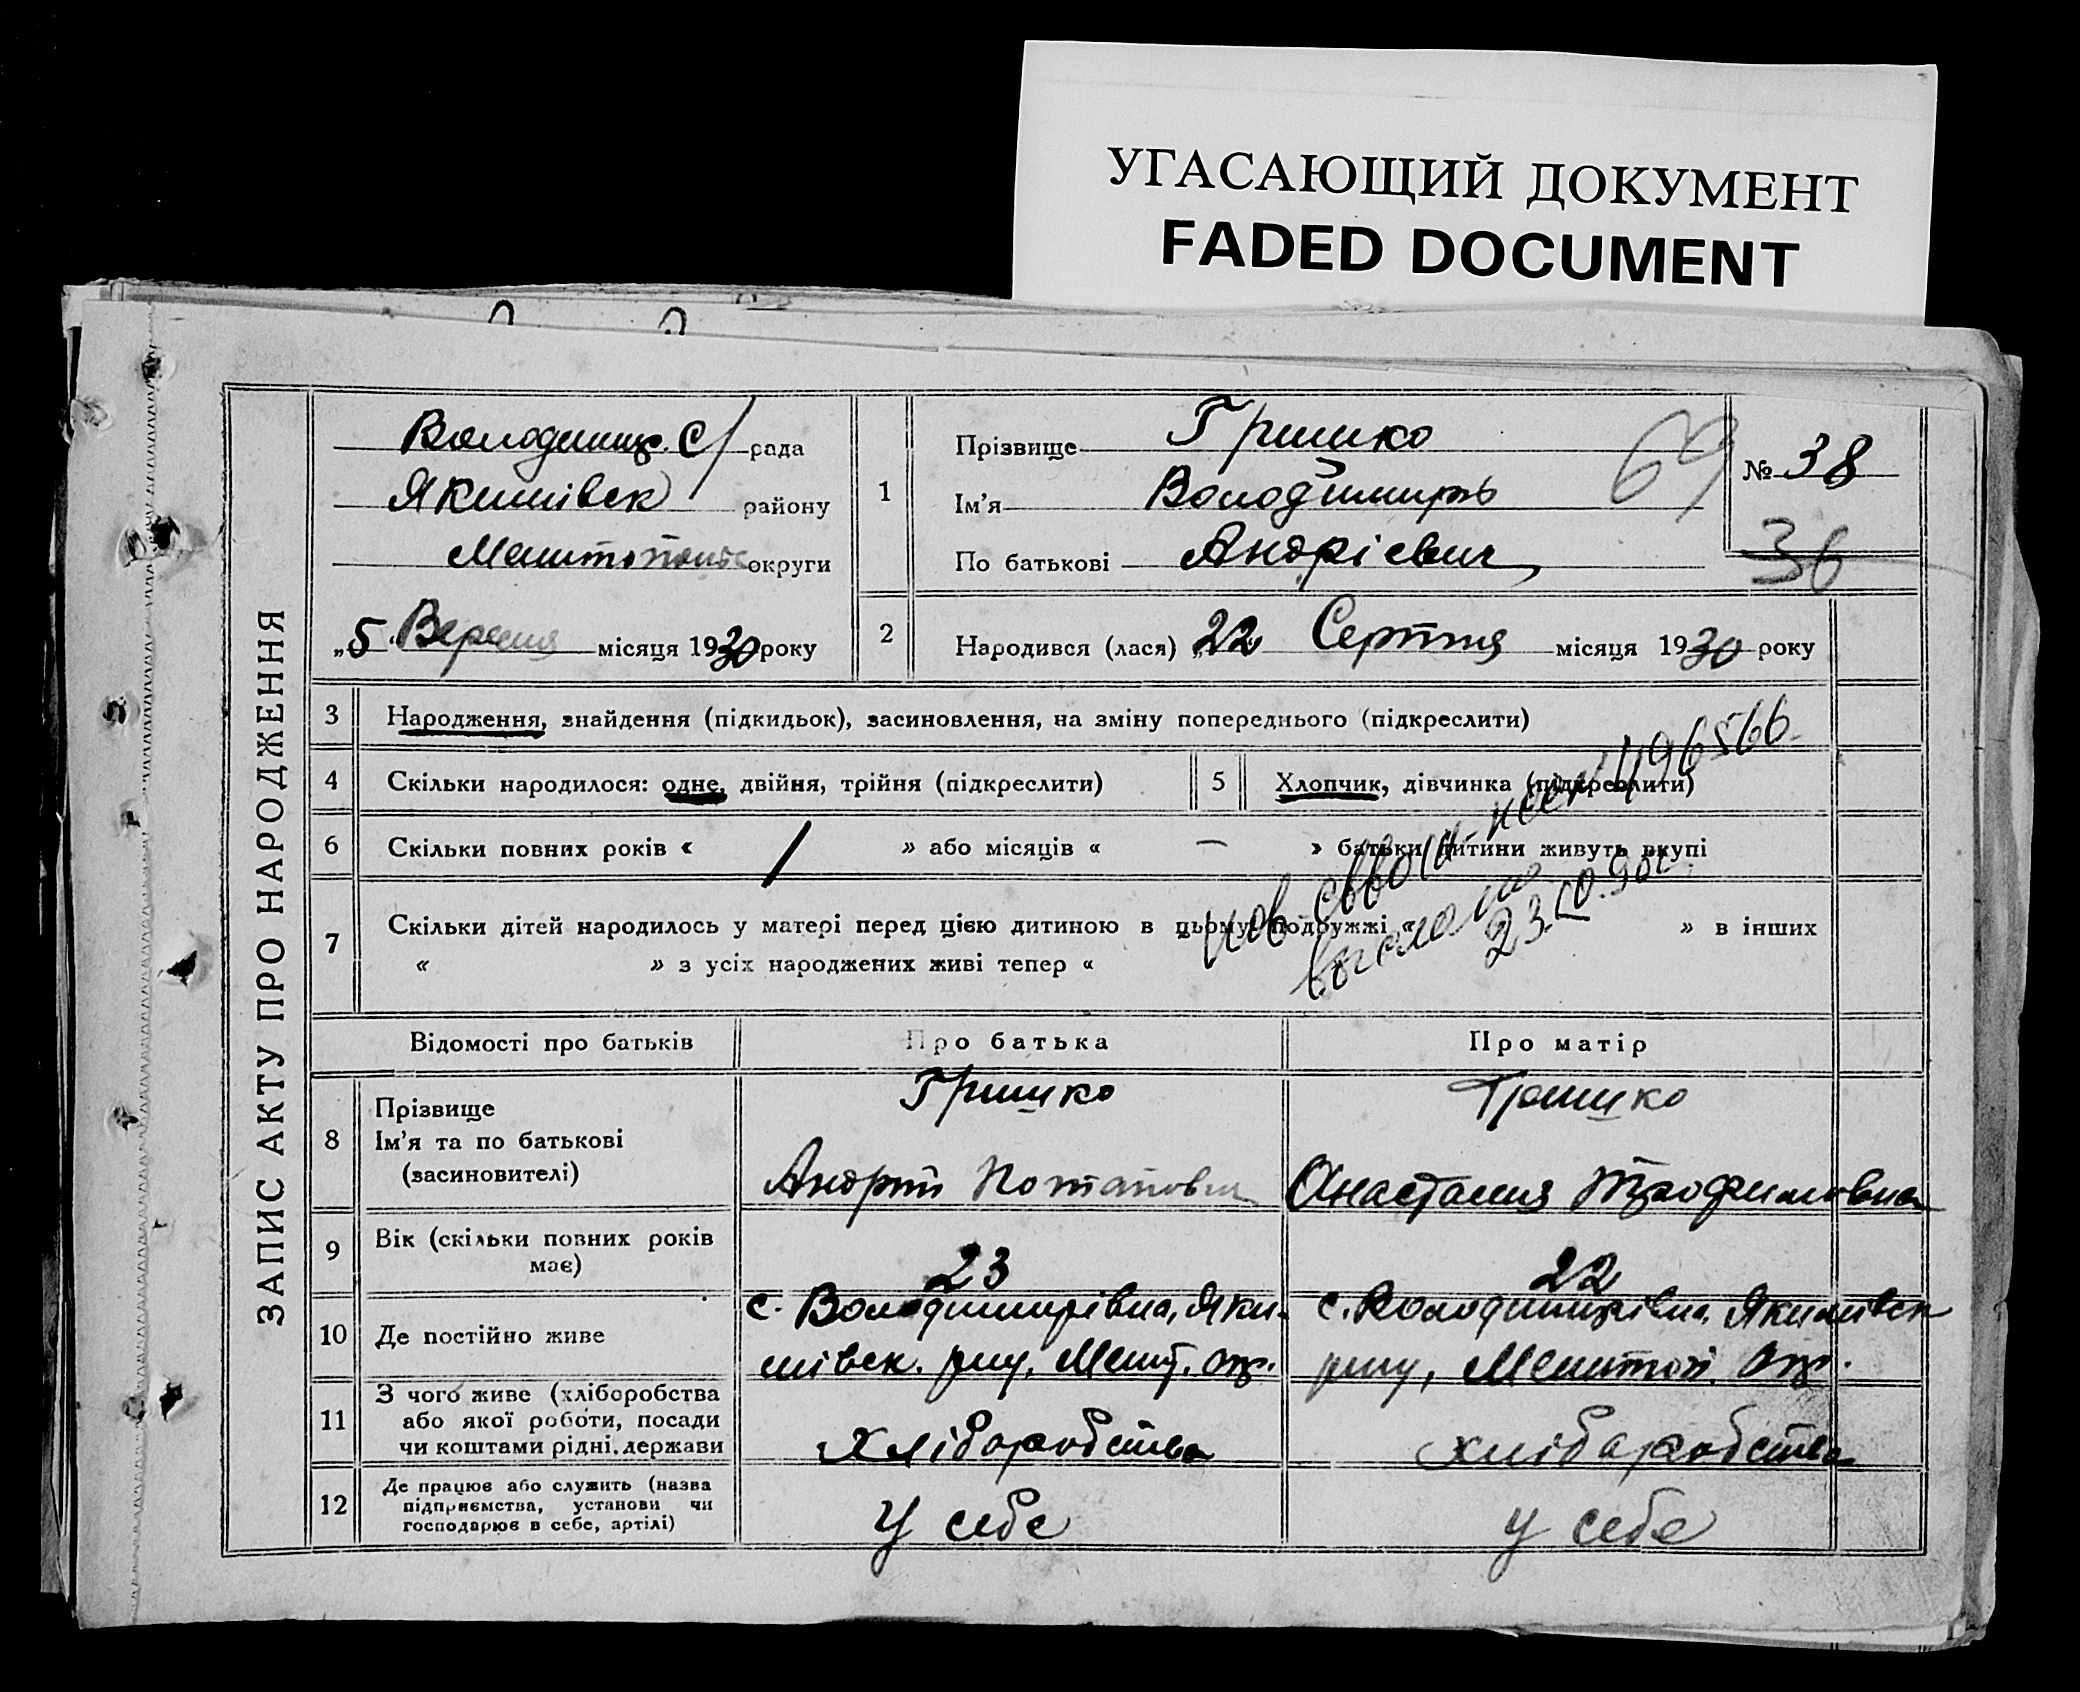 УГАСАЮЩИЙ ДОКУМЕНТ
FADED DOCUMENT
ЗАПИС АКТУ ПРО НАРОДЖЕННЯ
Володимир. С/ рада
Якимівск району
Мелитопольс округи
„5“ Вересня місяця 1930 року
1
Прізвище Гришко
Ім'я Володимиръ
По батькові Андрієвич
69
№ 38
36
2 Народився (лася) „22 Серпня місяця 1930 року
3 Народження, знайдення (підкидьок), засиновлення, на зміну попереднього (підкреслити)
4 Скільки народилося: одне, двійня, трійня (підкреслити)
5 Хлопчик, дівчинка (підкреслити)
6 Скільки повних років « 1 » або місяців « — » батьки дитини живуть вкупі
7 Скільки дітей народилось у матері перед цією дитиною в цьому подружжі « » в інших
« » з усіх народжених живі тепер «
пов. 496566
выслано 23.10.90г.
Відомості про батьків Про батька Про матір
8 Прізвище
Ім'я та по батькові
(засиновителі)
Гришко
Андрій Потапович
Гришко
Анастасия Трофимовна
9 Вік (скільки повних років
має)
23
22
10 Де постійно живе
с. Володимирівка, Яки-
мівск. р-ну, Мелит. окр.
с. Володимирівка, Якимівск
р-ну, Мелитоп. окр.
11 З чого живе (хліборобства
або якої роботи, посади
чи коштами рідні, держави
Хліборобства
хліборобства
12 Де працює або служить (назва
підприємства, установи чи
господарює в себе, артілі)
У себе
у себе